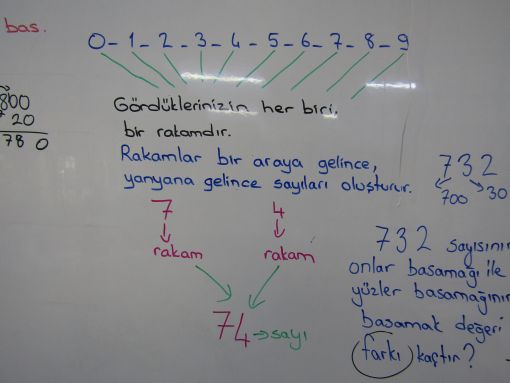 bas.
0-1-2-3-4-5-6-7-8-9
800
20
780
Gördüklerinizin her biri,
bir rakamdır.
Rakamlar bir araya gelince,
yanyana gelince sayıları oluşturur.
732
700 30
7 4
rakam rakam
74 → sayı
732 sayısının
onlar basamağı ile
yüzler basamağının
basamak değeri
farkı kaçtır?